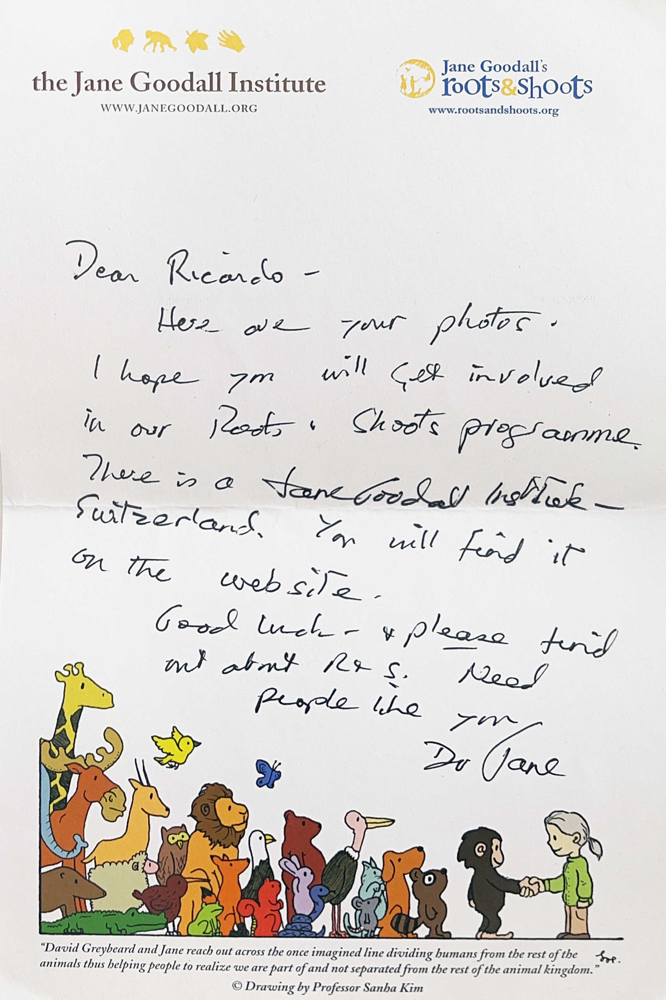 the Jane Goodall Institute
WWW.JANEGOODALL.ORG
Jane Goodall's
roots&shoots
www.rootsandshoots.org
Dear Ricardo –
Here are your photos.
I hope you will get involved
in our Roots & Shoots programme.
There is a Jane Goodall Institute –
Switzerland. You will find it
on the website.
Good luck – & please find
out about R & S. Need
people like you
Dr Jane
"David Greybeard and Jane reach out across the once imagined line dividing humans from the rest of the
animals thus helping people to realize we are part of and not separated from the rest of the animal kingdom."
© Drawing by Professor Sanha Kim